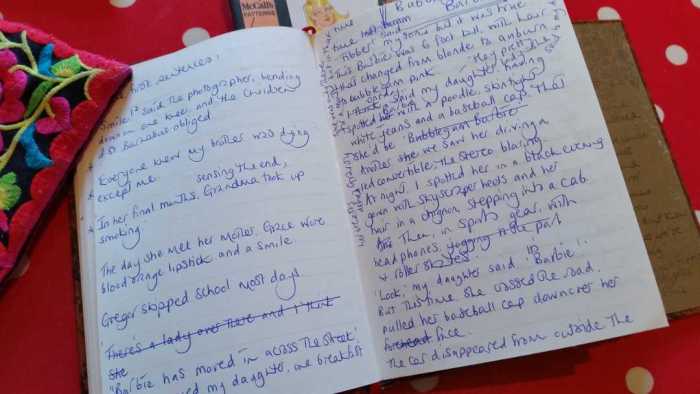 McCall's
PATTERNS
first sentences:
Smile!' said the photographer, bending
down on one knee, and the children
of St Barnabas obliged
Everyone knew my brother was dying
except me.
sensing the end,
In her final months, Grandma took up
smoking
The day she met her mother, Grace wore
blood orange lipstick and a smile.
Gregor skipped school most days
'There's a lady over there and I think
she
'Barbie has moved in across the street'
my daughter, one breakfast
name
'Fibber' my but it was true.
This Barbie was 6 foot tall, with hair
that changed from blonde to auburn
to bubblegum pink.
I think, said my daughter, having
spotted her with a poodle, skin tight
white jeans and a baseball cap. That
she'd be 'Bubblegum Barbie'
Another she we saw her driving a
red convertible, the stereo blaring.
At night, I spotted her in a black evening
gown with skyscraper heels and her
hair in a chignon, stepping into a cab.
Then, in sports gear, with
headphones, jogging in the park
+ roller skates.
'Look,' my daughter said. 'Its Barbie!'.
But this time she crossed the road.
pulled her baseball cap down over her
forehead face.
The car disappeared from outside the